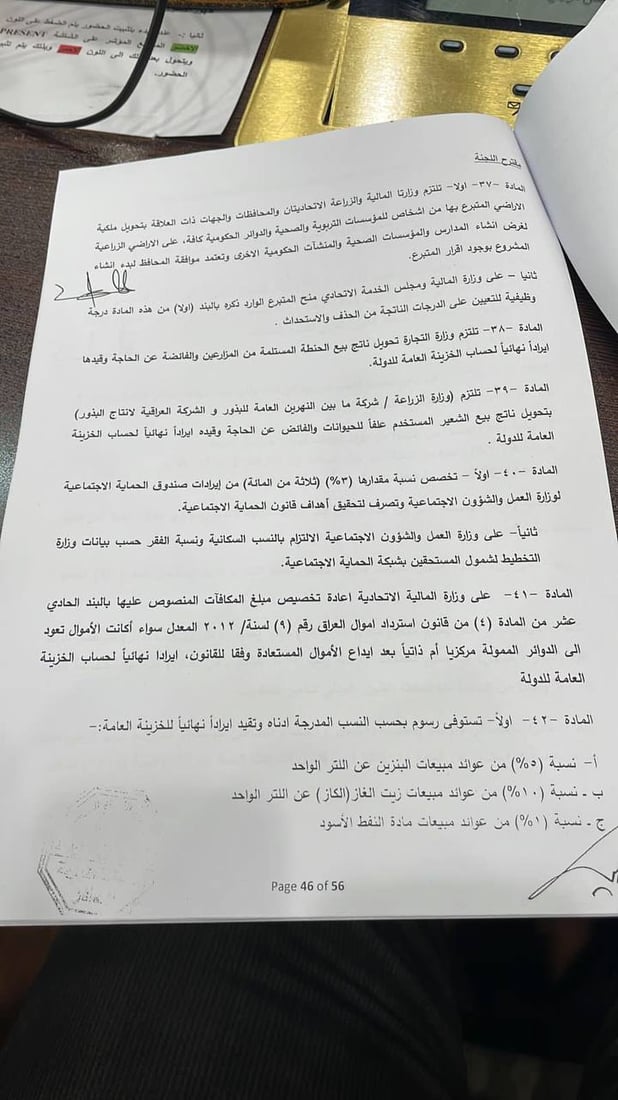 ثانيا :.
بتثبيت الحضور يتم الضغط على اللون
الاخضر
المؤشر على الشاشة PRESENT
ويتحول
الى اللون احمر وبذلك يتم
الحضور.
مقترح اللجنة
المادة -٣٧- اولا- تلتزم وزارتا المالية والزراعة الاتحاديتان والمحافظات والجهات ذات العلاقة بتحويل ملكية
الاراضي المتبرع بها من اشخاص للمؤسسات التربوية والصحية والدوائر الحكومية كافة، على الاراضي الزراعية
لغرض انشاء المدارس والمؤسسات الصحية والمنشآت الحكومية الاخرى وتعتمد موافقة المحافظ لبدء انشاء
المشروع بوجود اقرار المتبرع.
ثانيا – على وزارة المالية ومجلس الخدمة الاتحادي منح المتبرع الوارد ذكره بالبند (اولا) من هذه المادة درجة
وظيفية للتعيين على الدرجات الناتجة من الحذف والاستحداث .
المادة -٣٨- تلتزم وزارة التجارة تحويل ناتج بيع الحنطة المستلمة من المزارعين والفائضة عن الحاجة وقيدها
ايراداً نهائياً لحساب الخزينة العامة للدولة.
المادة -٣٩- تلتزم (وزارة الزراعة / شركة ما بين النهرين العامة للبذور و الشركة العراقية لانتاج البذور)
بتحويل ناتج بيع الشعير المستخدم علفاً للحيوانات والفائض عن الحاجة وقيده ايراداً نهائياً لحساب الخزينة
العامة للدولة .
المادة -٤٠- اولاً - تخصص نسبة مقدارها (٣%) (ثلاثة من المائة) من إيرادات صندوق الحماية الاجتماعية
لوزارة العمل والشؤون الاجتماعية وتصرف لتحقيق أهداف قانون الحماية الاجتماعية.
ثانياً- على وزارة العمل والشؤون الاجتماعية الالتزام بالنسب السكانية ونسبة الفقر حسب بيانات وزارة
التخطيط لشمول المستحقين بشبكة الحماية الاجتماعية.
المادة -٤١- على وزارة المالية الاتحادية اعادة تخصيص مبلغ المكافآت المنصوص عليها بالبند الحادي
عشر من المادة (٤) من قانون استرداد اموال العراق رقم (٩) لسنة/ ٢٠١٢ المعدل سواء أكانت الأموال تعود
الى الدوائر الممولة مركزيا أم ذاتياً بعد ايداع الأموال المستعادة وفقا للقانون، ايرادا نهائياً لحساب الخزينة
العامة للدولة
المادة -٤٢- اولاً- تستوفى رسوم بحسب النسب المدرجة ادناه وتقيد ايراداً نهائياً للخزينة العامة:-
أ- نسبة (٥%) من عوائد مبيعات البنزين عن اللتر الواحد
ب ـ نسبة (١٠%) من عوائد مبيعات زيت الغاز (الكاز) عن اللتر الواحد
ج ـ نسبة (١%) من عوائد مبيعات مادة النفط الأسود
Page 46 of 56